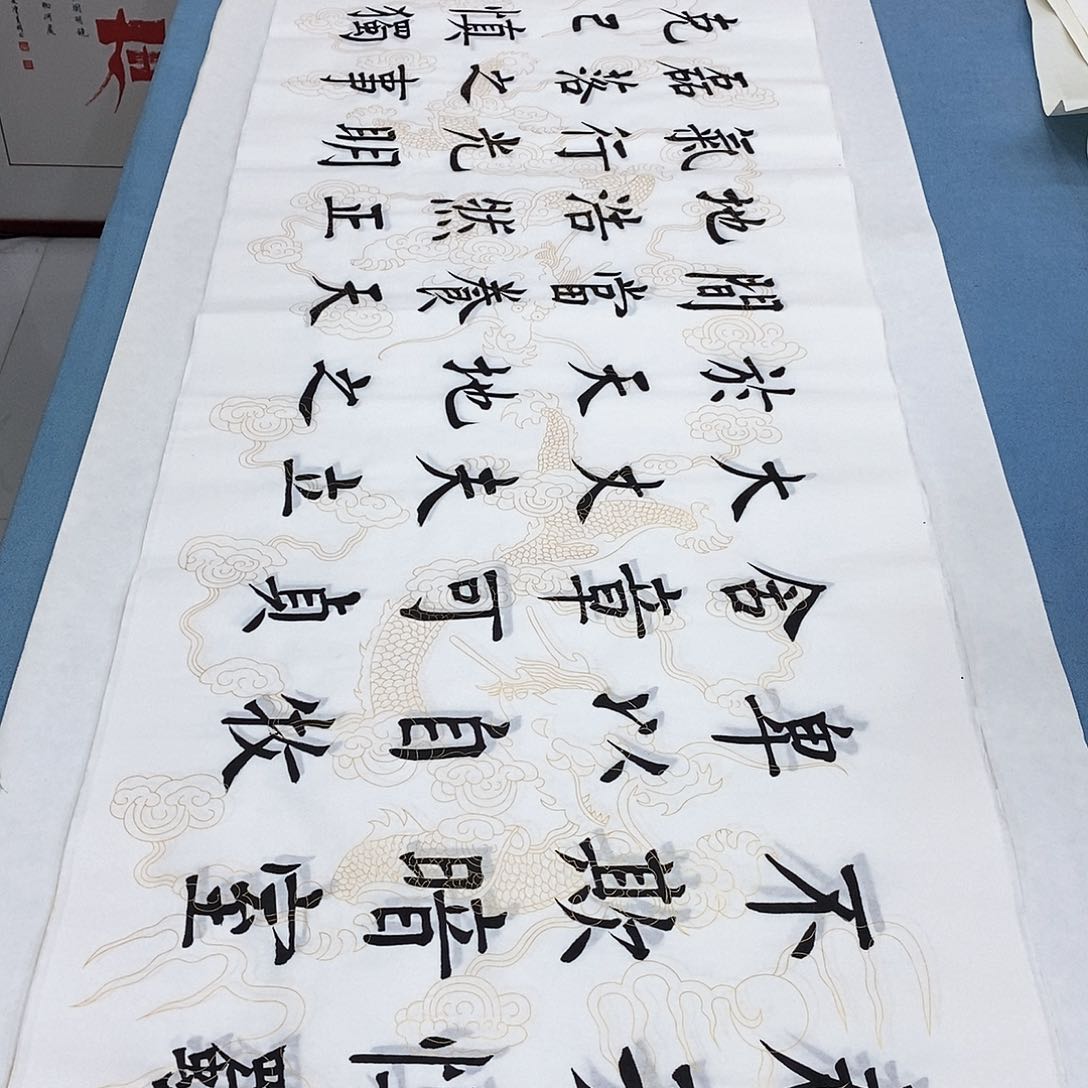 不欺暗室
卑以自牧
含章可貞
大丈夫立
於天地之
間當養天
地浩然正
氣行光明
磊落之事
克己慎獨